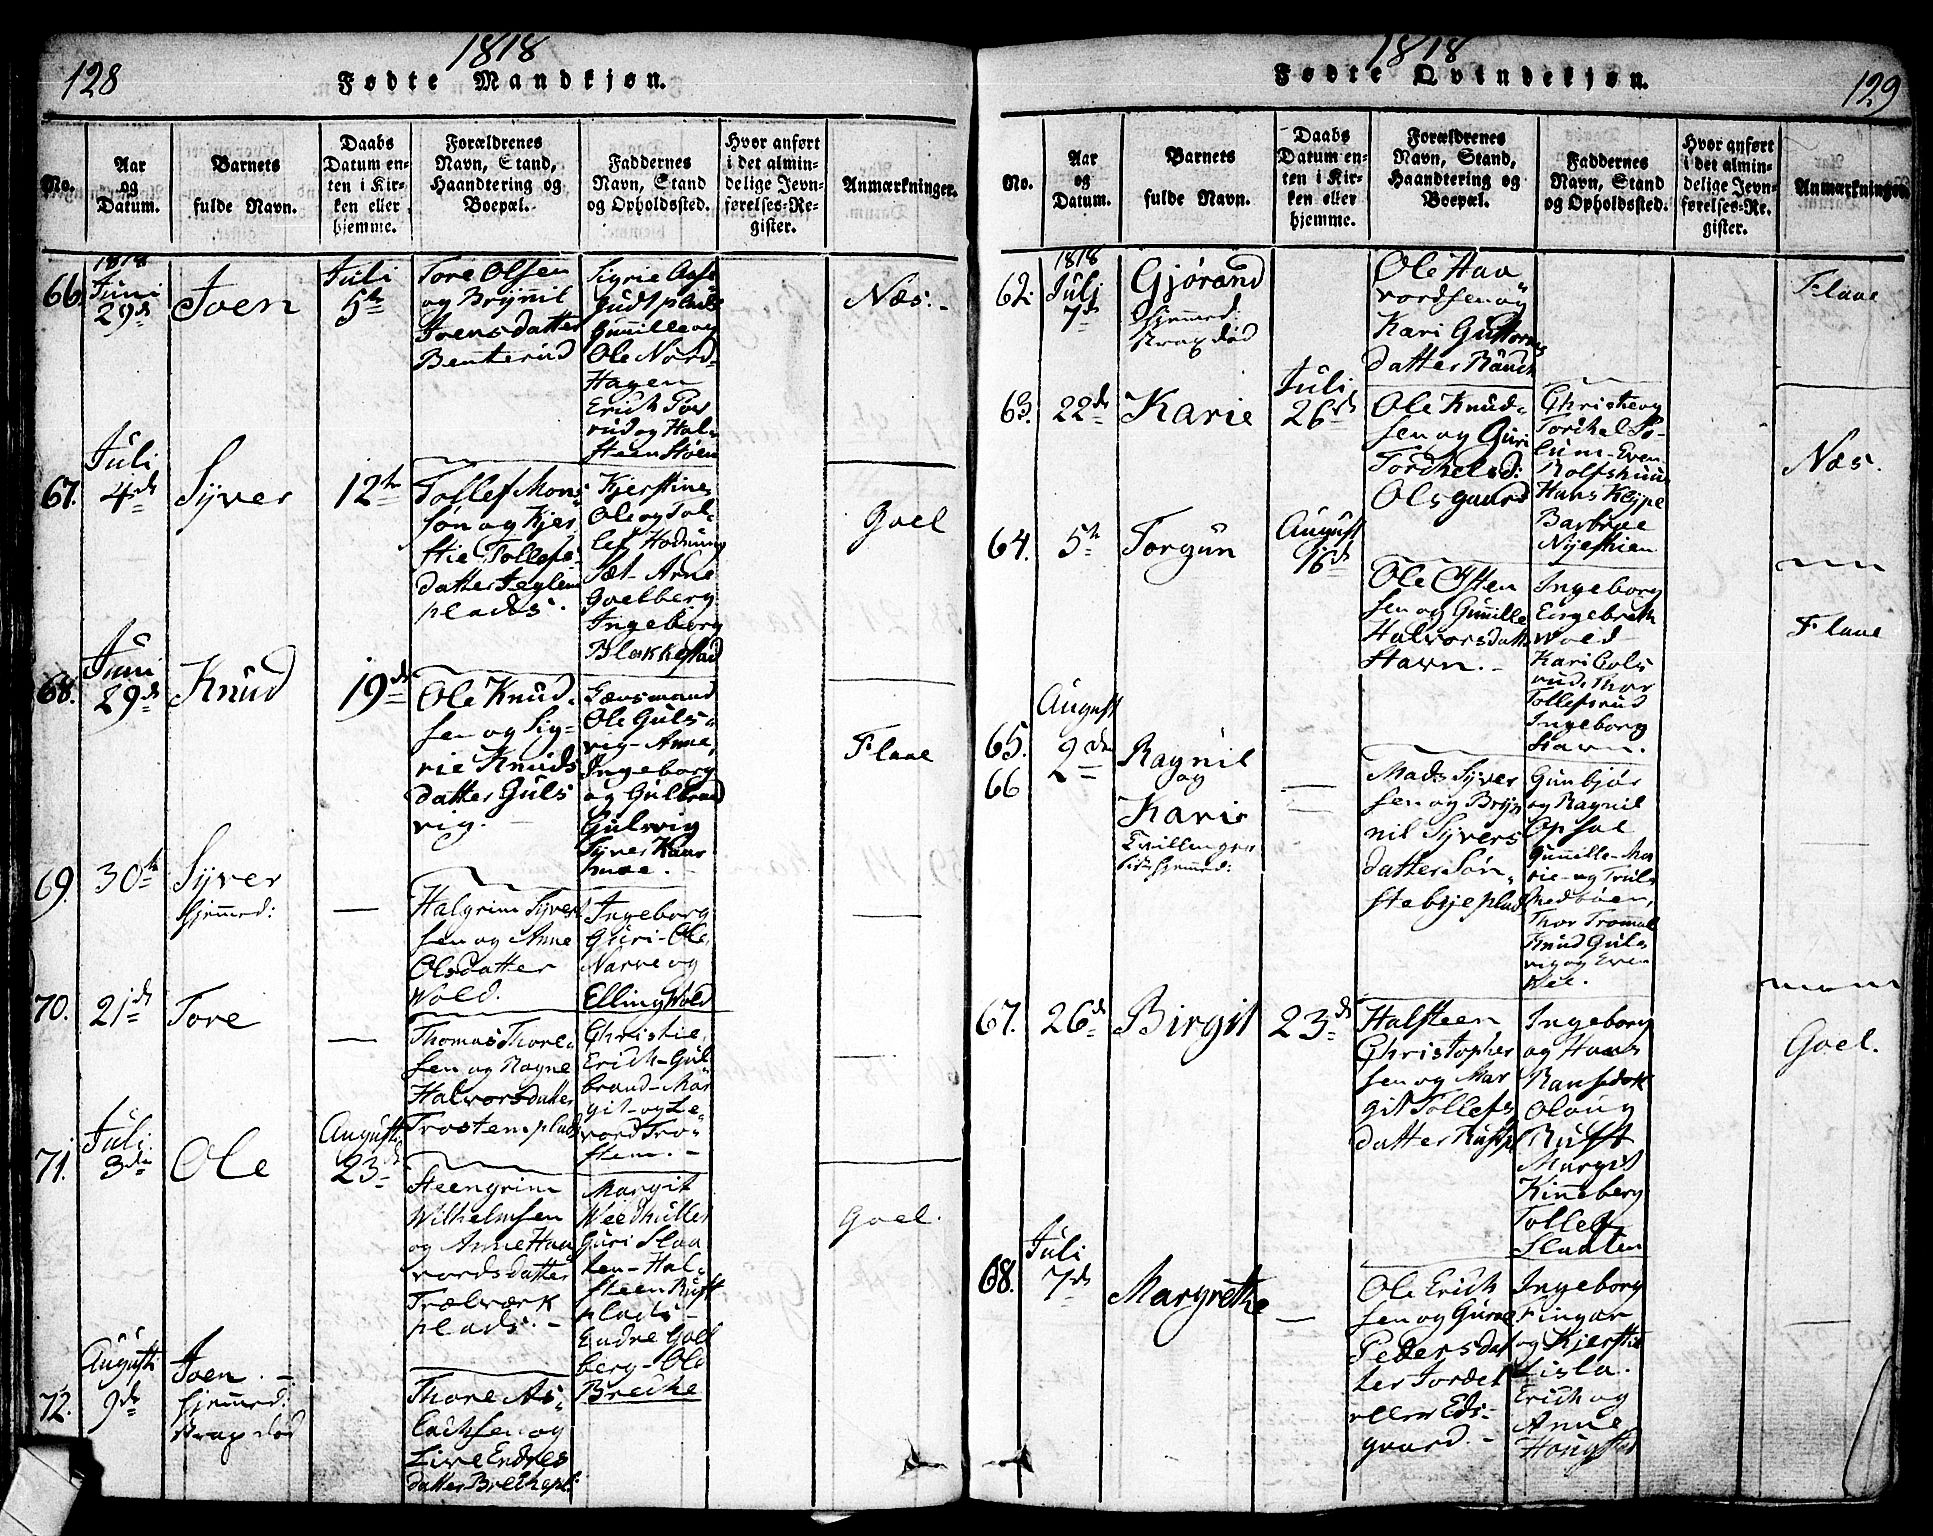 128
1818
Fødte Mandkjøn.
No.
Aar
og
Datum.
Barnets
fulde Navn.
Daabs
Datum en-
ten i Kir-
ken eller
hjemme.
Forældrenes
Navn, Stand,
Haandtering og
Boepæl.
Faddernes
Navn, Stand
og Opholdssted.
Hvor anført
i det almin-
delige Jevn-
førelses-Re-
gister.
Anmærkninger.
66.
1818
Juni
29de
Joen
Juli
5te
Tore Olsen
og Brynnil
Jvensdatter
Benterud
Sigrie
Gudtsplads
Gunnille og
Ole Nord-
Hagen
Erich
rud og Hal-
steen Støen
Næs.
67.
Juli
4de
Syver
12te
Tollef Mons
søn og Kjer
stie Tollefs
datter Teglem
plads.
Kjerstine
Ole og Tol-
lef Hodnung
Sæt. Arne
Goelberg
Ingeborg
Blakkestad
Goel
68.
Juni
29de
Knud
19de
Ole Knud-
sen og Sig-
rie Knuds
datter Guls
vig.
Lensmand
Ole Guls-
vig-Anne,
Ingeborg
og Gulbrand
Gulsvig
Syver Kaas
moe.
Flaae
69.
30te
Syver
hjemmed:
Halgrim Syver
sen og Anne
Olsdatter
Wold.
Ingeborg
Guri-Ole
Narve og
Elling Wold
70.
21de
Tore
Thomas Thore
sen og Ragne
Halvorsdatter
Trostemplads
Christie,
Erich-Gul
brand-Mar
git-og Le
vord Tro-
stem.
71.
Juli
3die
Ole
Augusti
23de
Steengrim
Wilhelmsen
og Anne Haa
vordsdatter
Trælværk
plads.
Margit
Weedhuller
Guri Slaa
ten-Hal-
steen Rust
plads-
Endre Goel
berg-Ole
Breche
Goel.
72.
Augusti
9de
Joen.
hjemmed:
strax død
Thore As-
lachsen og
Live Endres
datter Brechepl:
129
1818
Fødte Qvindekjøn.
No.
Aar
og
Datum.
Barnets
fulde Navn.
Daabs
Datum en-
ten i Kir-
ken eller
hjemme.
Forældrenes
Navn, Stand,
Haandtering og
Boepæl.
Faddernes
Navn, Stand
og Opholdssted.
Hvor anført
i det almin-
delige Jevn-
førelses-Re-
gister.
Anmærkninger.
62.
1818
Juli
7de
Gjørand
hjemmed:
strax død
Ole Haa
vordsen og
Kari Guttorms
datter
Flaae
63.
22de
Karie
Juli
26de
Ole Knud-
sen og Guri
Torchelsd:
Olsgaard
Christie og
Torchel
lum-Even
Rolfshuus
Hans Klype
Barbroe
Nijestuen
Næs.
64.
5te
Torgun
August
16de
Ole Østen
sen og Gunnille
Halvorsdatt
Stavn.
Ingeborg
Engebreth
Wold
Kari Gols
rud. Thor
Tollefsrud
Ingeborg
Stavn.
Flaae
65.
66
August
2den
Ragnil
og
Karie
Tvillinger
hjemmed:
Mads Syver
sen og Bryn
nil Syvers
datter Søn-
stebyeplads
Gunbjør
og Ragnil
Opsal
Gunnille-Ma
rie-og Truls
Medbøen,
Thor Trommal
Knud Guls
vig og Even
Wee.
67.
26de
Birgit
23de
Halsteen
Christopher
sen og Mar
git Tollefs
datter Rustpl
Ingeborg
og Hans
Ransedok
Olaug
Rust
Margit
Kinneberg
Tollef
Slaaten
Goel.
68.
Juli
7de
Margrethe
Ole Erich
sen og Guroe
Pedersdat
ter Jordet
eller Eds-
gaard.
Ingeborg
Fingar
og Kjerstie
Lisla.
Erich og
Anne